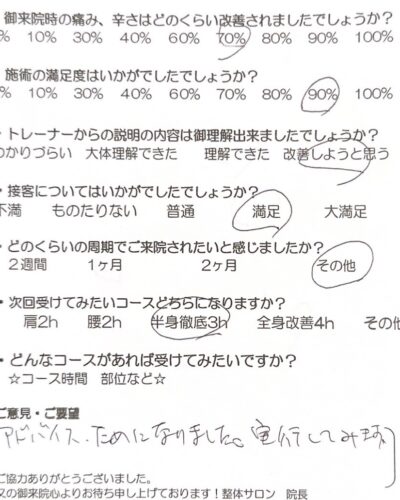 御来院時の痛み、辛さはどのくらい改善されましたでしょうか?
% 10% 30% 40% 60% 70% 80% 90% 100%
施術の満足度はいかがでしたでしょうか?
% 10% 30% 40% 60% 70% 80% 90% 100%
・トレーナーからの説明の内容は御理解出来ましたでしょうか?
わかりづらい 大体理解できた 理解できた 改善しようと思う
・接客についてはいかがでしたでしょうか?
不満 ものたりない 普通 満足 大満足
・どのくらいの周期でご来院されたいと感じましたか?
2週間 1ヶ月 2ヶ月 その他
・次回受けてみたいコースどちらになりますか?
肩2h 腰2h 半身徹底3h 全身改善4h その他
・どんなコースがあれば受けてみたいですか?
☆コース時間 部位など☆
ご意見・ご要望
アドバイス、ためになりました。実行してみます
ご協力ありがとうございました。
又の御来院心よりお待ち申し上げております!整体サロン 院長